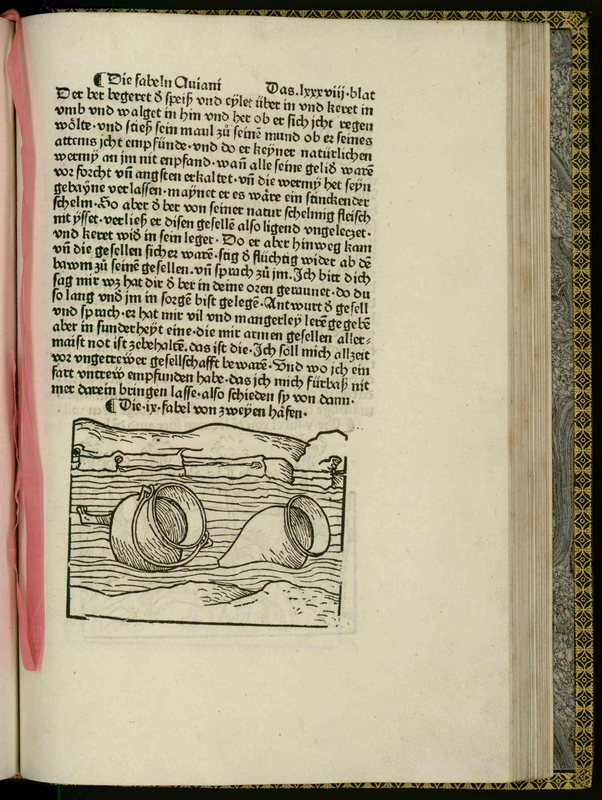 ¶ Die fabeln Auiani Das.lxxxviij.blat
Der ber begeret d̕ speiß vnd eylet über in vnd keret in
vmb vnd walget in hin vnd her ob er sich jcht regen
wölte·vnd stieß sein maul zů seinē mund ob er seines
attems jcht empfünde·vnd do er keyner natürlichen
wermy an jm nit enpfand·wañ alle seine gelid̕ warē
vor forcht vñ angsten erkaltet·vñ die wermy het seyn
gebayne verlassen·maynet er es wåre ein stinckender
schelm·So aber d̕ ber von seiner natur schelmig fleisch
nit ysset·verließ er disen gesellē also ligend vngeleczet·
vnd keret wid̕ in sein leger· Do er aber hinweg kam
vñ die gesellen sicher warē·stig d̕ flüchtig wider ab dē
bawm zů seinē gesellen.vñ sprach zů jm.Ich bitt dich
sag mir wz hat dir d̕ ber in deine oren geraunet·do du
so lang vnd̕ jm in sorgē bist gelegē·Antwurt d̕ gesell
vnd sprach·er hat mir vil vnd mangerley lerē gegebē
aber in sunderheyt eine·die mir armen gesellen aller⸗
maist not ist zebehaltē.das ist die·Ich söll mich allzeit
vor vngetrewer gesellschafft bewarē·Vnd wo ich ein
fart vntrew empfunden habe·das ich mich fürbaß nit
mer darein bringen lasse·also schieden sy von dann·
¶ Die·ix·fabel von zweyen håfen·